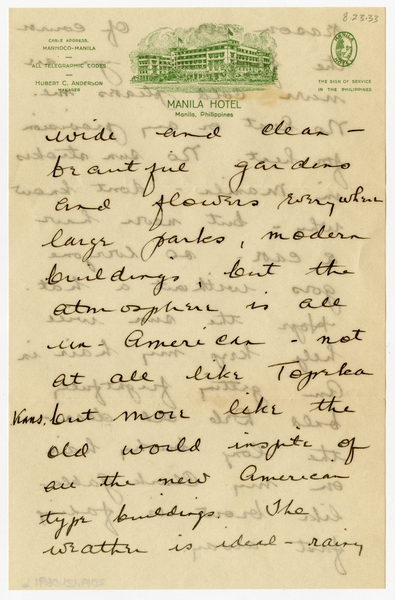 8-23-33
CABLE ADDRESS,
MANHOCO-MANILA
ALL TELEGRAPHIC CODES
HUBERT C. ANDERSON
MANAGER
MANILA HOTEL
THE SIGN OF SERVICE
IN THE PHILIPPINES
MANILA HOTEL
Manila, Philippines
wide and clean -
beautiful gardens
and flowers everywhere
large parks, modern
buildings, but the
atmosphere is all
un-American - not
at all like Topeka
Kans. but more like the
old world inspite of
all the new American
type buildings. The
weather is ideal - rainy